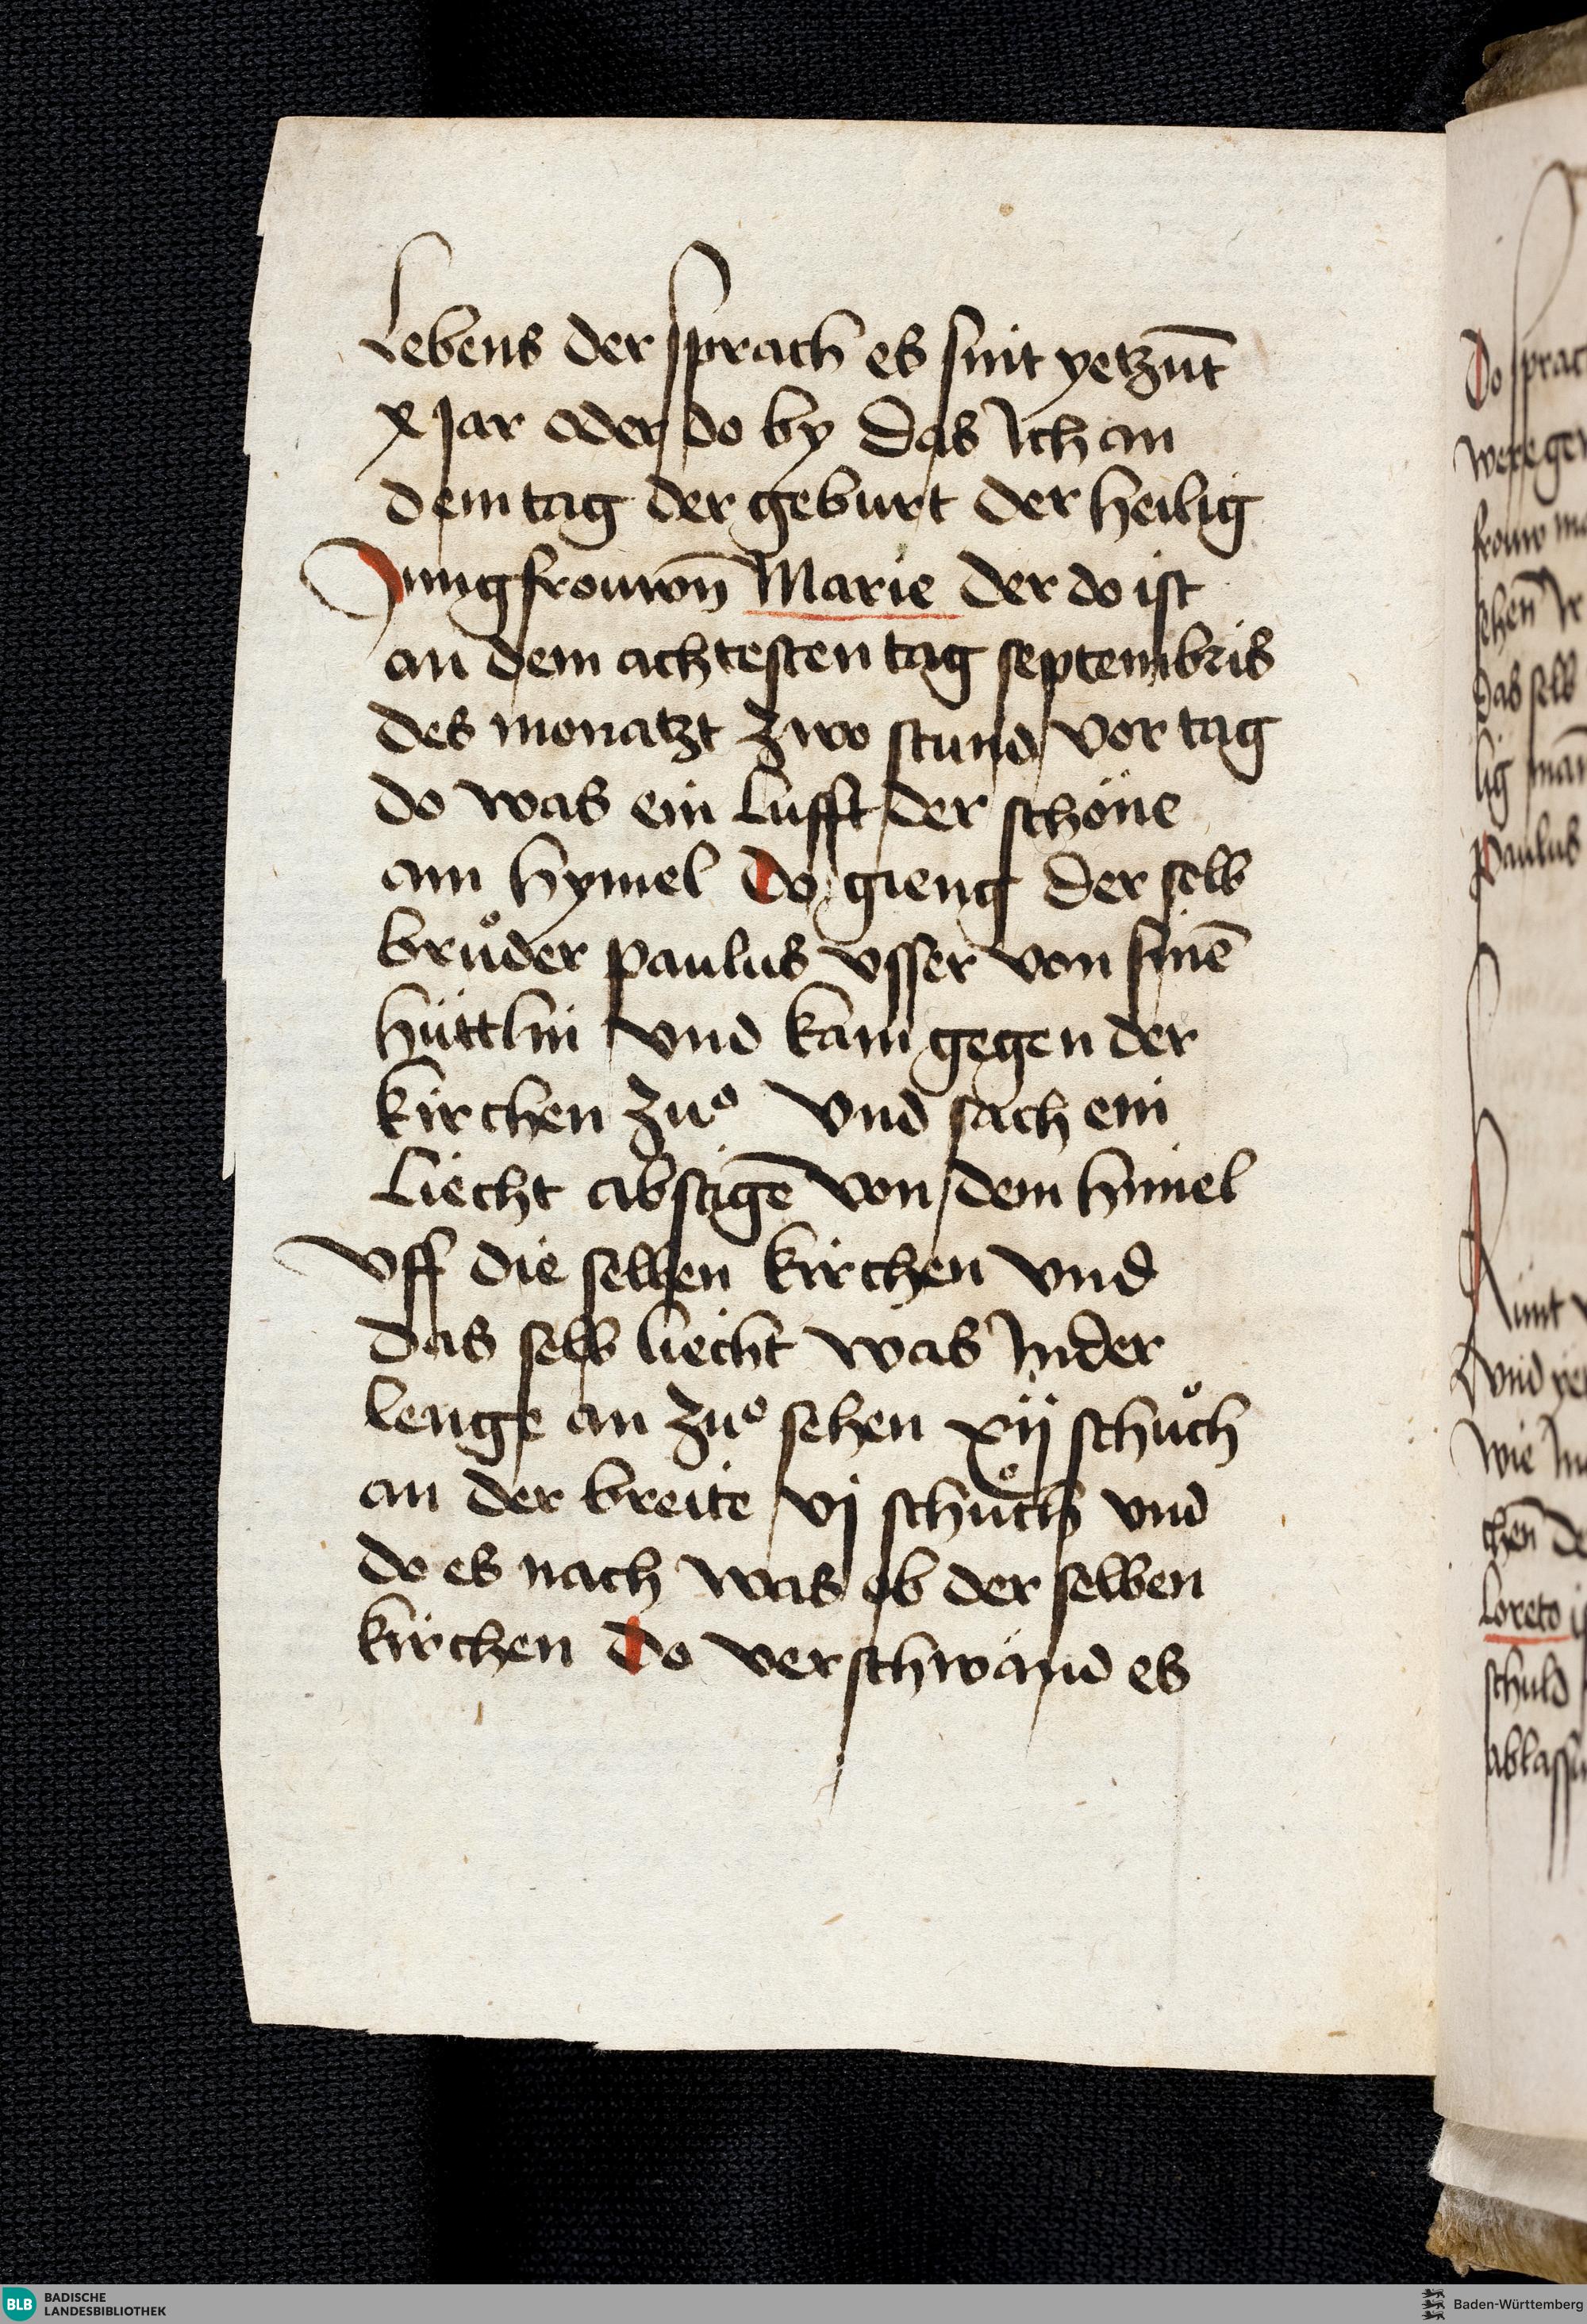 Lebens der sprach es sint yetzūt
x Jar oder do by das Ich an
dem tag der geburt der heilig
Jungfrouwn̄ Marie der do ist
an dem achtesten tag septembris
des monatzt zwo stund vor tag
do was ein lufft der schöne
am hymel Do gieng der selb
bruͦder paulus vsser von sinē
hüttlin vnd kam gegen der
kirchen zuͦ vnd sach ein
Liecht abstigē von dem himel
vff die selben kirchen vnd
das selb liecht was Inder
lenge an zuͦ sehen xij schuͦch
an der breite vj schuͦch vnd
do es nach was ob der selben
kirchen Do verschwand es
Do sprac
were gen
frouw
sehen̄ Ir
das selb
lig man̄
paulus
vnd
wie
chen̄ de
Loreto
schuld
BLB BADISCHE
LANDESBIBLIOTHEK
Baden-Württemberg